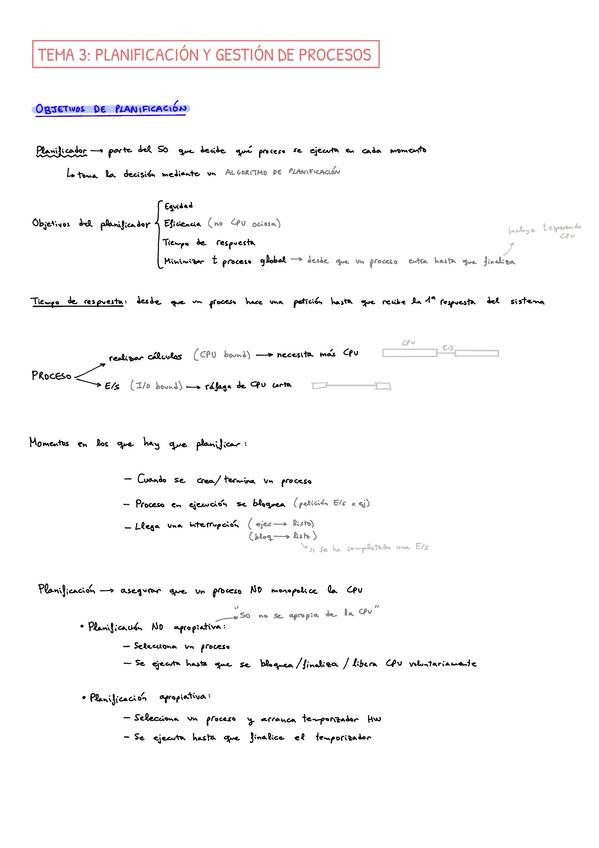 TEMA 3: PLANIFICACIÓN Y GESTIÓN DE PROCESOS
OBJETIVOS DE PLANIFICACIÓN
Planificador → parte del SO que decide qué proceso se ejecuta en cada momento
↳ toma la decisión mediante un ALGORITMO DE PLANIFICACIÓN
Objetivos del planificador
Equidad
Eficiencia (no CPU ociosa)
Tiempo de respuesta
Minimizar t proceso global → desde que un proceso entra hasta que finaliza
incluye t esperando
CPU
Tiempo de respuesta: desde que un proceso hace una petición hasta que recibe la 1ª respuesta del sistema
PROCESO
realizar cálculos (CPU bound) → necesita más CPU
CPU
E/S
E/S (I/O bound) → ráfaga de CPU corta
Momentos en los que hay que planificar:
- Cuando se crea/termina un proceso
- Proceso en ejecución se bloquea (petición E/S x ej)
- Llega una interrupción (ejec → listo)
(bloq → listo)
si se ha completado una E/S
Planificación → asegurar que un proceso NO monopolice la CPU
"SO no se apropia de la CPU"
• Planificación NO apropiativa:
- Selecciona un proceso
- Se ejecuta hasta que se bloquea/finaliza/libera CPU voluntariamente
• Planificación apropiativa:
- Selecciona un proceso y arranca temporizador HW
- Se ejecuta hasta que finalice el temporizador